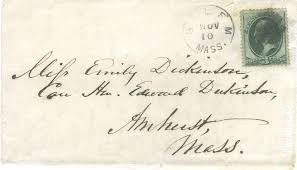 SALEM
NOV
10
MASS.
Miss Emily Dickinson,
Care Hon. Edward Dickinson,
Amherst,
Mass.